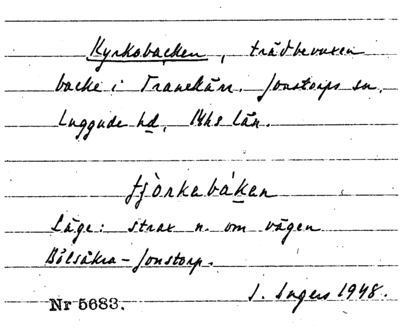 Kyrkobacken, trädbevuxen
backe i Tranekärr. Jonstorps sn.
Luggude hd, Mhs län.
fjörkabákan
Läge: strax n. om vägen
Bölsåkra - Jonstorp.
I. Ingers 1948.
Nr 5683.